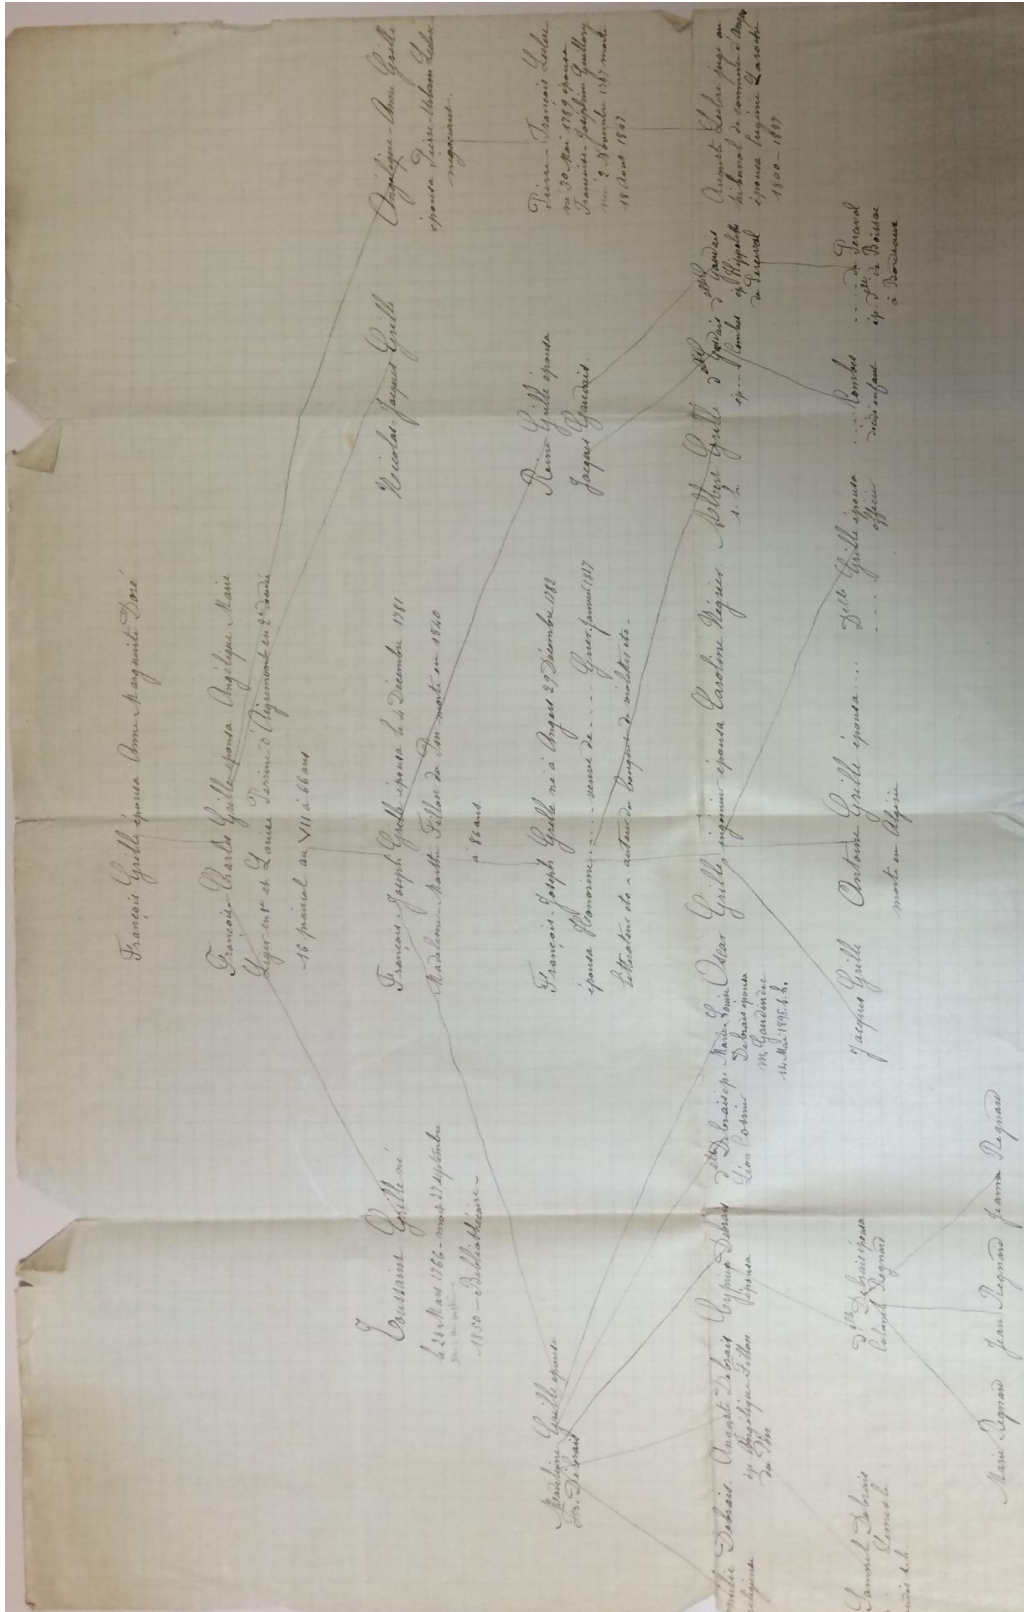 François Grille épousa Anne Marguerite Doré
François-Charles Grille épousa Angélique Marie
Léger en 1er et Louise Perrine d'Aigremont en 2e
16 prairial an VII à 66 ans
Toussaint Grille né
le 28 Mars 1766 - mort 27 septembre
1850 - Bibliothécaire -
François-Joseph Grille épousa le 4 Décembre 1781
Madeleine-Marthe Fillon du Pin morte en 1840
à 86 ans
Nicolas-Jacques Grille
Angélique-Anne Grille
épousa Pierre-Urbain Leclerc
négociant.
Madeleine Grille épousa
Fr. Debrais
François-Joseph Grille né à Angers 29 Décembre 1782
épousa Honorine ........ veuve de ..... janvier 1817
littérateur etc - auteur du bouquet de violettes etc -
Reine Grille épousa
Jacques Gaudais
Pierre-François Leclerc
né 30 Mai 1789 épousa
Françoise-Joséphine Guillory
née 2 Novembre morte
18 Août 1867
Debrais.
religieuse
Auguste Debrais
ép Angélique Fillon
du Pin
Cyprien Debrais
épousa
dlle Debrais ép.
Léon Cosnier
Marie Louise
Debrais épousa
M. Gaudinier
14 Mai 1895. s. h.
Oscar Grille ingénieur épousa Caroline Négrier
Albert Grille
s. h.
dlle Gaudais
ép .... Combes
dlle Gaudais
ép Hippolyte
de Perceval
Auguste Leclerc juge au
tribunal de commerce d'Angers
épousa Eugénie Larochel
1800 - 1887
Debrais
dlle Debrais épousa
Colonel Regnard
Jacques Grille
Antoine Grille épousa ....
morte en Algérie
Delle Grille épousa
..... officier
.... Combes
décédé enfant
.... de Perceval
ép. dlle de Boissac
à Bordeaux
Marie Regnard
Jean Regnard
Jeanne Regnard